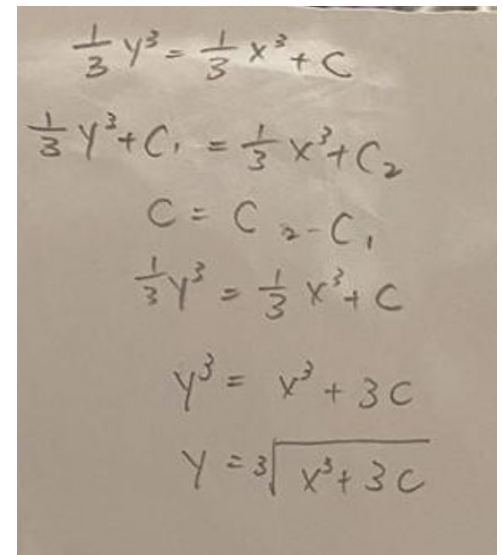 1/3 y³ = 1/3 x³ + C
1/3 y³ + C₁ = 1/3 x³ + C₂
C = C₂ - C₁
1/3 y³ = 1/3 x³ + C
y³ = x³ + 3C
y = ³√(x³ + 3C)